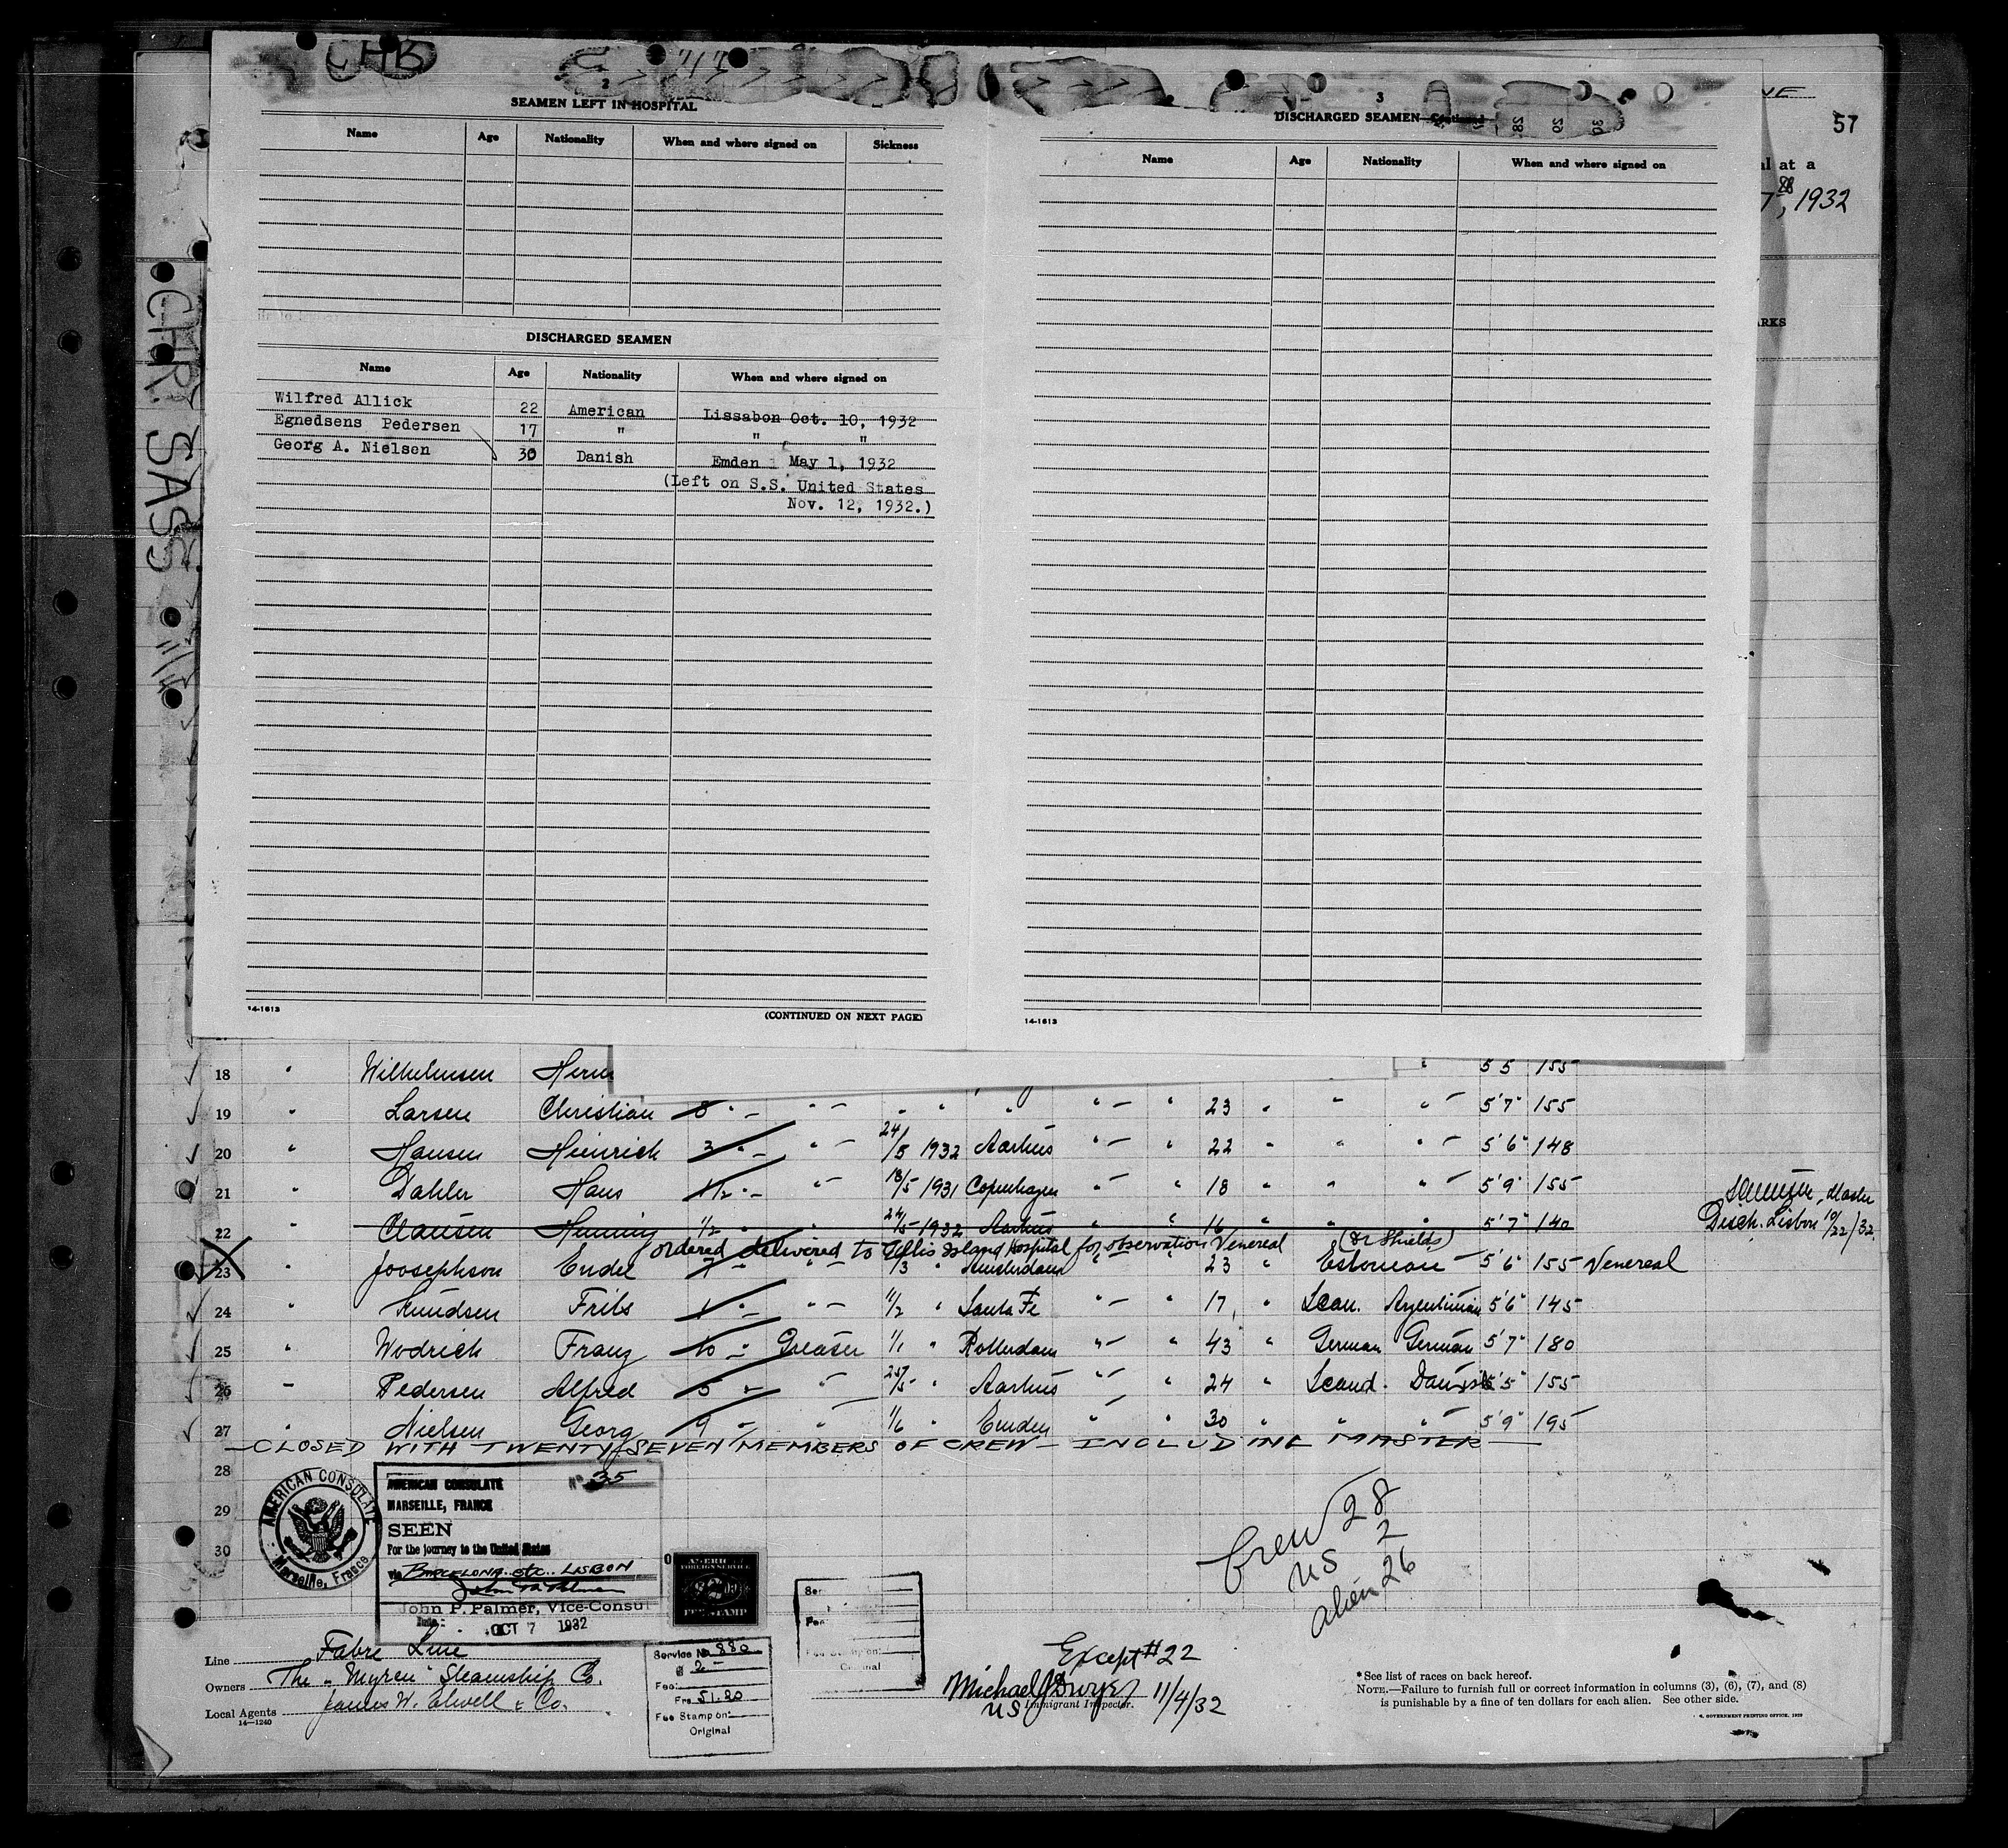 CHB
2
SEAMEN LEFT IN HOSPITAL
Name Age Nationality When and where signed on Sickness
DISCHARGED SEAMEN
Name Age Nationality When and where signed on
Wilfred Allick 22 American Lissabon Oct. 10, 1932
Egnedsens Pedersen 17 " " "
Georg A. Nielsen 30 Danish Emden May 1, 1932
(Left on S.S. United States
Nov. 12, 1932.)
14-1613 (CONTINUED ON NEXT PAGE)
3
DISCHARGED SEAMEN—Continued
28 29 30
Name Age Nationality When and where signed on
14-1613
57
al at a
1932
RKS
CHR. SASS
11/4
18 " Wilhelmsen " 5 5 155
19 " Larsen Christian 8 " — " — " " " " — " 23 " " " — 5'7" 155
20 " Hansen Heinrich 3 " — " — 24/8 1932 Aarhus " — " 22 " " " — 5'6" 148
21 " Dahler Hans 1 1/2 " — " — 18/5 1931 Copenhagen " — " 18 " " " — 5'9" 155
22 " Clausen Henning 1/2 " " 24/5 1932 Aarhus " " 16 " " " 5'7" 140 Master
Disch. Lisbon 10/22/32
ordered delivered to Ellis Island Hospital for observation Venereal (Dr Shields)
23 " Joosephson Endel 7 " — " — 1/3 " Amsterdam " — " 23 " Estonian — 5'6" 155 Venereal
24 " Knudsen Frits 1 " — " — 11/2 " Santa Fe " — " 17 " Scan. Argentinian 5'6" 145
25 " Wodrich Franz 10 " — Greaser 1/1 " Rotterdam " — " 43 " German German 5'7" 180
26 " Pedersen Alfred 5 " — " — 25/5 " Aarhus " — " 24 " Scand. Danish 5'5" 155
27 " Nielsen Georg 9 " — " — 1/6 " Emden " — " 30 " " " — 5'9" 195
— CLOSED WITH TWENTY SEVEN MEMBERS OF CREW — INCLUDING MASTER —
28
29
30
AMERICAN CONSULATE
Marseille, France
AMERICAN CONSULATE No 35
MARSEILLE, FRANCE
SEEN
For the journey to the United States
via BARCELONA etc. LISBON
John P. Palmer
John P. Palmer, Vice-Consul
Date: OCT 7 1932
AMERICAN
FOREIGN SERVICE
$2.00
FEE STAMP
Crew 28
US 2
alien 26
Line Fabre Line
Owners The "Myren" Steamship Co.
Local Agents James W. Elwell & Co.
14—1240
Service No 880
$ 2 —
Fee:
Frs 51.20
Fee Stamp on:
Original
Ser
Fee
Except #22
Michael J Dwyer 11/4/32
US Immigrant Inspector.
*See list of races on back hereof.
NOTE.—Failure to furnish full or correct information in columns (3), (6), (7), and (8)
is punishable by a fine of ten dollars for each alien. See other side.
GOVERNMENT PRINTING OFFICE. 1929